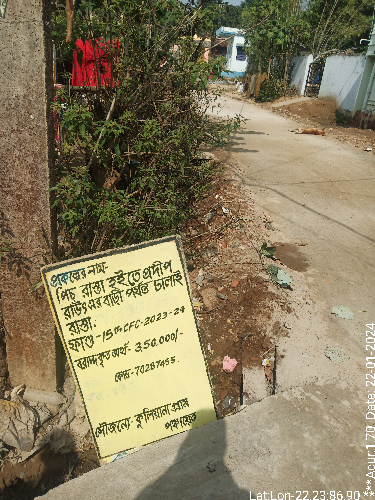 প্রকল্পের নাম-
পিচ রাস্তা হইতে প্রদীপ
রাউৎ এর বাড়ী পর্যন্ত ঢালাই
রাস্তা।
ফাণ্ড-15th CFC-2023-24
বরাদ্দকৃত অর্থ- 3,50,000/-
কোড-70287455.
সৌজন্যে- কুলিয়ানা গ্রাম
পঞ্চায়েত
Lat:Lon-22.23:86.90 ***Acur:1.70 Date:22-01-2024